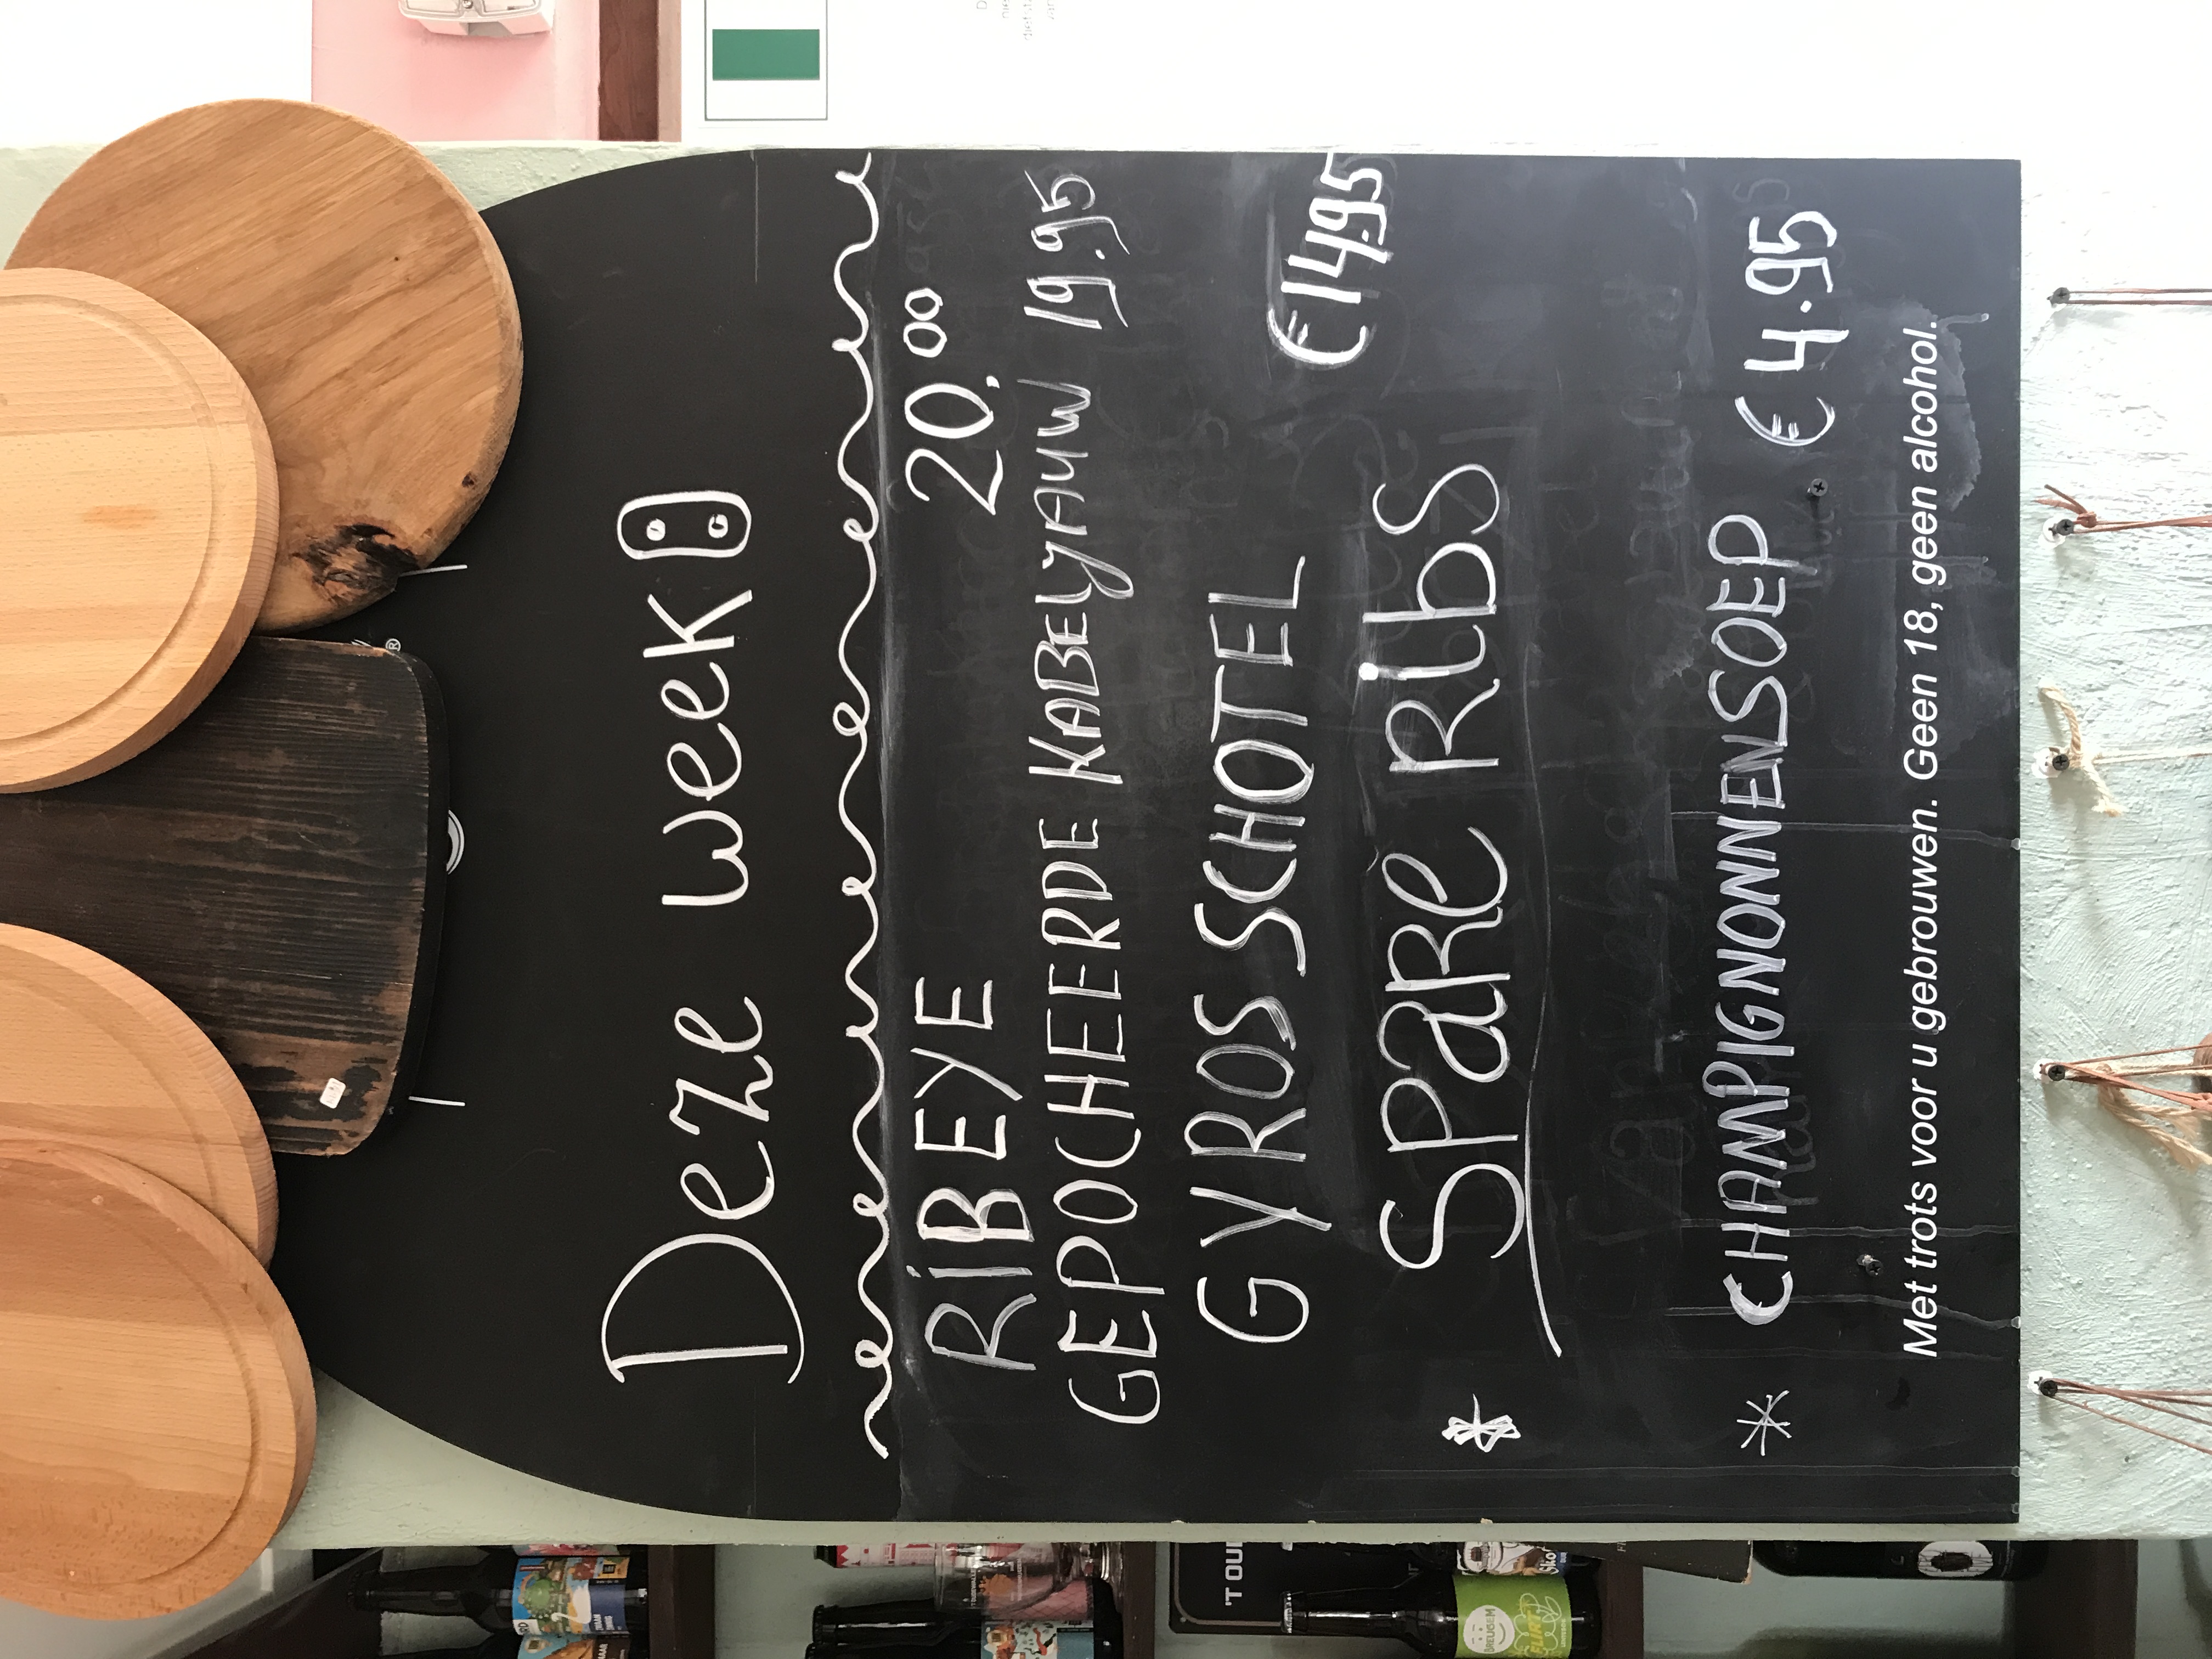 Deze week :
RiBEYE 20,00
GEPOCHEERDE KABELYAUW 19.95
GYROS SCHOTEL
€ 14.95
* Spare Ribs
* CHAMPIGNONNENSOEP € 4.95
Met trots voor u gebrouwen. Geen 18, geen alcohol.
'T OU
BREUGEM
FLIRT